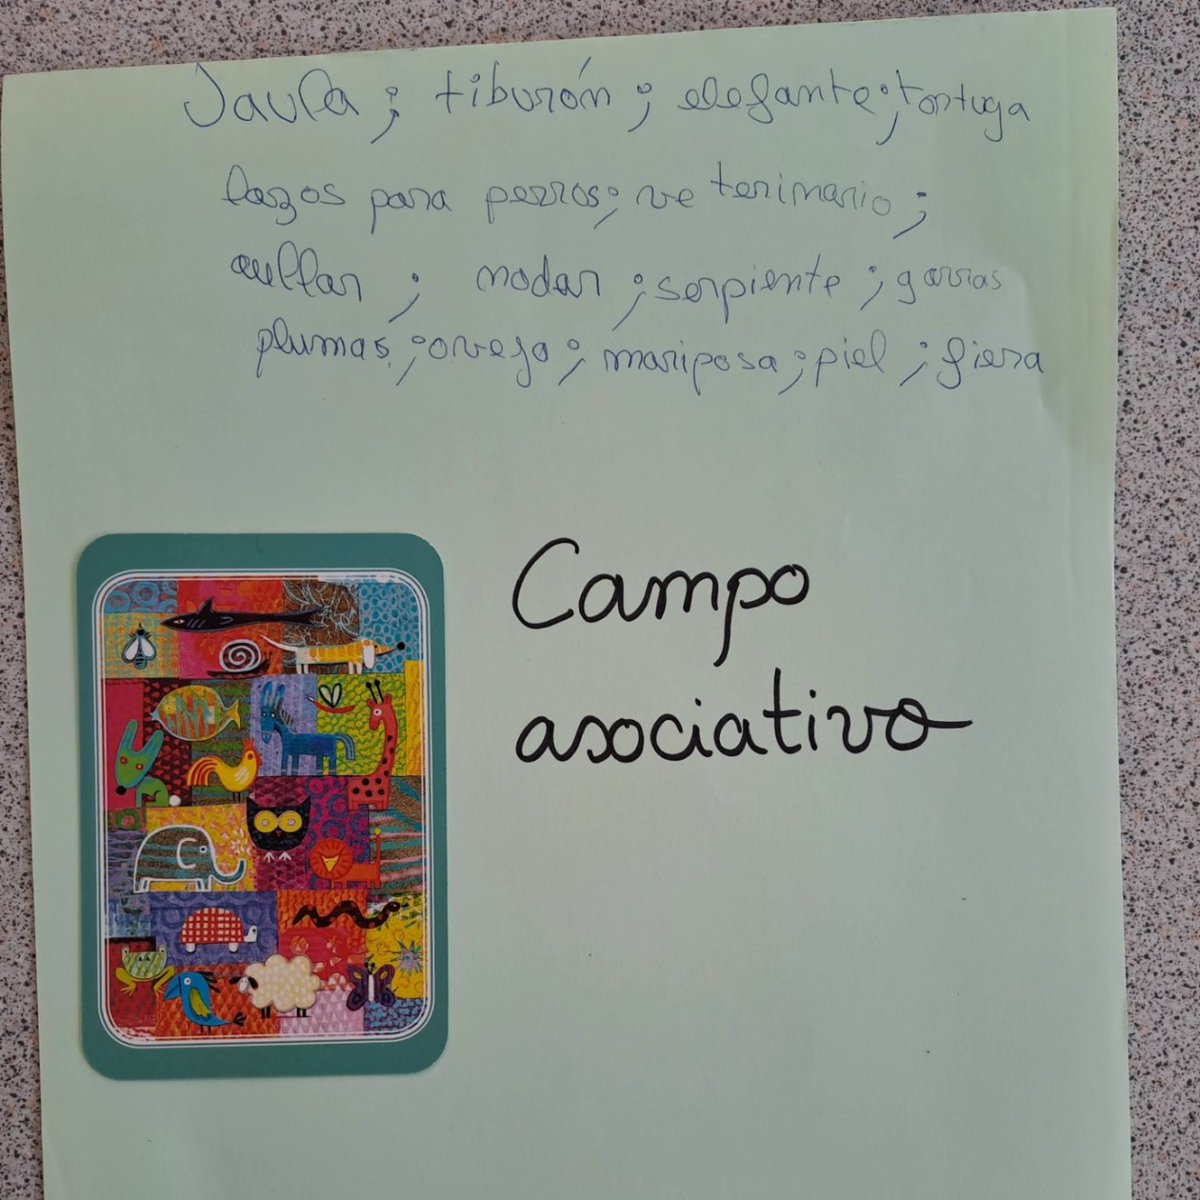 Jaula ; tiburón ; elefante ; tortuga
lazos para perros ; veterimario ;
aullar ; nadar ; serpiente ; garras
plumas ; oveja ; mariposa ; piel ; fiera
Campo
asociativo